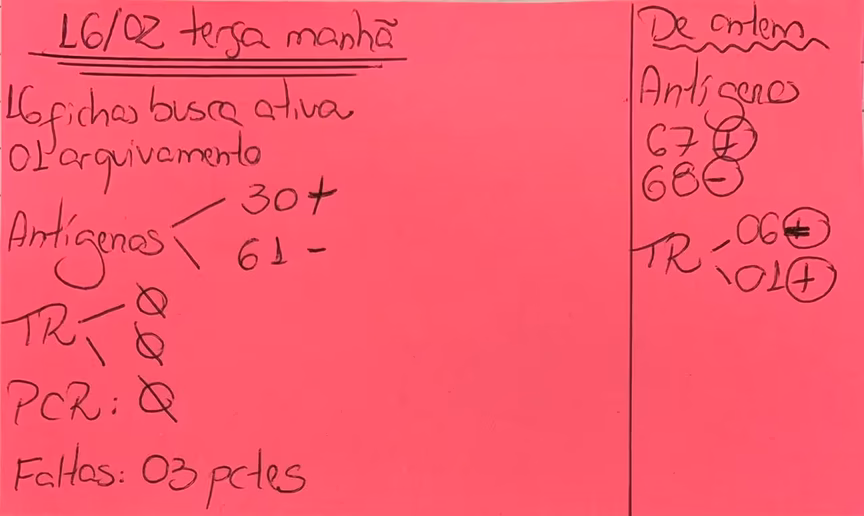 16/02 terça manhã
16 fichas busca ativa
01 arquivamento
Antígenos
30 +
61 -
TR
Ø
Ø
PCR: Ø
Faltas: 03 pctes
De ontem
Antígeno
67 +
68 -
TR
06 -
01 +